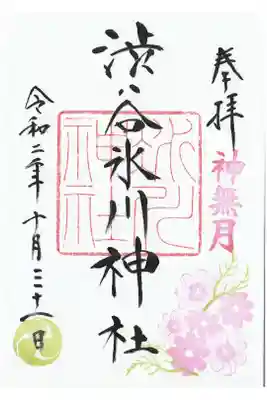 奉拝
神無月
渋谷氷川神社
氷川
神社
令和二年十月三十一日